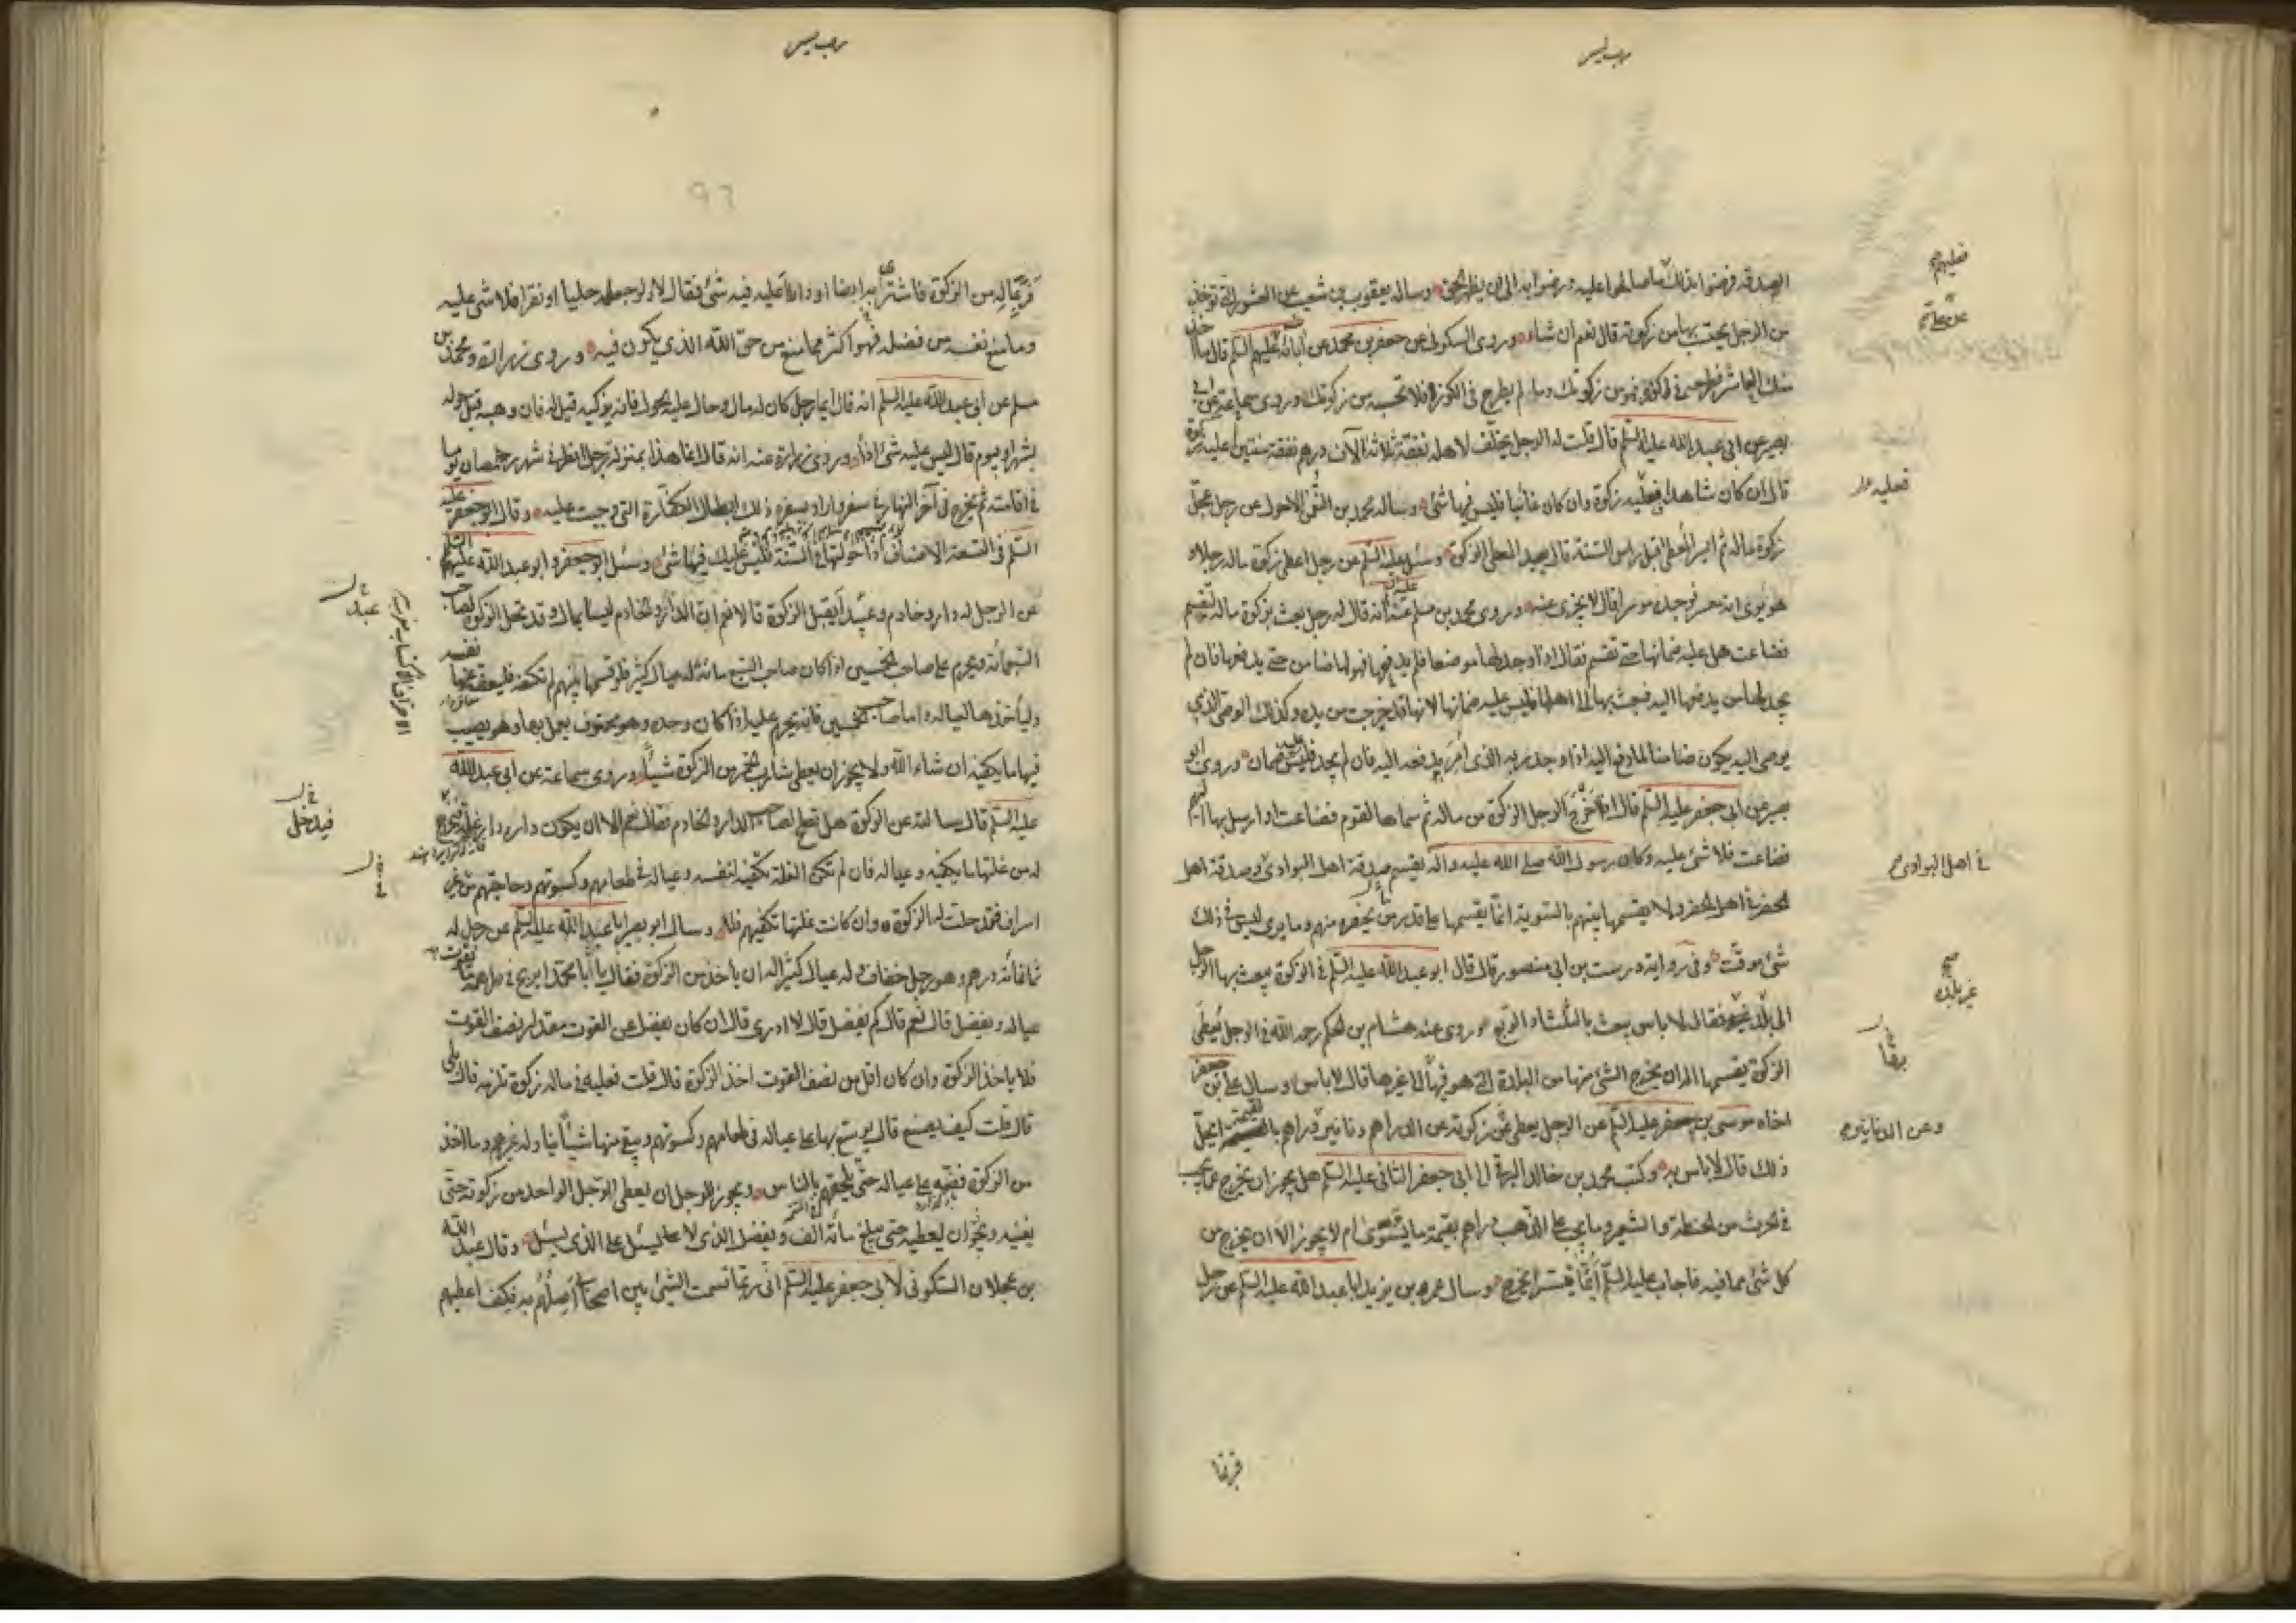 الصدقة فرضوا بذلك ما صالحوا عليه ورضوا به الى ان يظهر الحق وسأله يعقوب بن شعيب عن العشور التي تؤخذ
من الرجل يحتسب بها من زكوته قال نعم ان شاء وروى السكوني عن جعفر بن محمد عن آبائه عليهم السلم قال ما اخذ
منك العاشر فطرحه في كوزة فهو من زكوتك وما لم يطرح في الكوز فلا تحتسبه من زكوتك وروى سماعة عن ابي
بصير عن ابي عبد الله عليه السلم قال قلت له الرجل يخلف لاهله نفقة ثلاثة الآف درهم نفقة سنتين عليه زكوة
قال ان كان شاهدا فعليه زكوة وان كان غائبا فليس فيها شئ وسأله محمد بن النعمن الاحول عن رجل عجل
زكوة ماله ثم ايسر المعطى قبل راس السنة قال يعيد المعطي الزكوة وسئل عليه السلم عن رجل اعطى زكوة ماله رجلا و
هو يرى انه معسر فوجده موسرا قال لا يجزي عنه وروى محمد بن مسلم عنه انه قال له رجل بعث بزكوة ماله لتقسم
فضاعت هل عليه ضمانها حتى تقسم فقال اذا وجد لها موضعا فلم يدفعها فهو لها ضامن حتى يدفعها فان لم
يجد لها من يدفعها اليه فبعث بها الى اهلها فليس عليه ضمانها لانها قد خرجت من يده وكذلك الوصي الذي
يوصى اليه يكون ضامنا لما دفع اليه اذا وجد ربه الذي امر بدفعه اليه فان لم يجد فليس عليه ضمان وروى ابو
بصير عن ابي جعفر عليه السلم قال اذا اخرج الرجل الزكوة من ماله ثم سماها لقوم فضاعت او ارسل بها اليهم
فضاعت فلا شئ عليه وكان رسول الله صلى الله عليه وآله يقسم صدقة اهل البوادي وصدقة اهل
الحضر في اهل الحضر ولا يقسمها بينهم بالسوية انما يقسمها على قدر من يحضره منهم وما يرى ليس في ذلك
شئ موقت وفي رواية درست بن ابي منصور قال قال ابو عبد الله عليه السلم في الزكوة يبعث بها الرجل
الى بلد غيره فقال لا باس يبعث بالثلث او الربع وروى عنه هشام بن الحكم رحمه الله في الرجل يعطى
الزكوة يقسمها اله ان يخرج الشئ منها من البلدة التي هو فيها الى غيرها قال لا باس وسال علي بن جعفر
اخاه موسى بن جعفر عليه السلم عن الرجل يعطي عن زكوته عن الدراهم دنانير دراهم بالقيمة ايحل
ذلك قال لا باس به وكتب محمد بن خالد البرقي الى ابي جعفر الثاني عليه السلم هل يجوز ان يخرج عما يجب
في الحرث من الحنطة والشعير وما يجب على الذهب دراهم بقيمة ما يسوى ام لا يجوز الا ان يخرج من
كل شئ مما فيه فاجاب عليه السلم ايما تيسر يخرج وسال عمر بن يزيد ابا عبد الله عليه السلم عن رجل
فعليهم
فعليه
في اهل البوادي
صح
غير بلده
وعن الدنانير
فر بما
٩٦
فر بماله من الزكوة فاشترى به ارضا او دارا عليه فيه شئ فقال لا ولو جعله حليا او نقرا فلا شئ عليه
وما منع نفسه من فضله فهو اكثر مما منع من حق الله الذي يكون فيه وروى زرارة ومحمد بن
مسلم عن ابي عبد الله عليه السلم انه قال ايما رجل كان له مال وحال عليه الحول فانه يزكيه قيل له فان وهبه قبل حوله
بشهر او بيوم قال ليس عليه شئ اذا وروى زرارة عنه انه قال انما هذا بمنزلة رجل افطر في شهر رمضان يوما
في اقامته ثم خرج في آخر النهار في سفر واراد بسفره ذلك ابطال الكفارة التي وجبت عليه وقال ابو جعفر عليه
السلم في التسعة الاصناف اذا حولتها في السنة فليس عليك فيها شئ وسئل ابو جعفر وابو عبد الله عليهما السلم
عن الرجل له دار وخادم وعبد ايقبل الزكوة قالا نعم ان الدار والخادم ليسا بمال وقد تحل الزكوة لصاحب
السبعمائة ويحرم على صاحب الخمسين اذا كان صاحب السبع مائة له عيال كثير فلو قسمها بينهم لم تكفه فليعف عنها نفسه
وليأخذها لعياله واما صاحب الخمسين فانه يحرم عليه اذا كان وحده وهو محترف يعمل بها وهو يصيب
فيها ما يكفيه ان شاء الله ولا يجوز ان يعطى شارب الخمر من الزكوة شيئا وروى سماعة عن ابي عبد الله
عليه السلم قال سالته عن الزكوة هل تصلح لصاحب الدار والخادم فقال نعم الا ان يكون داره دار غلة فيخرج
له من غلتها ما يكفيه وعياله فان لم تكن الغلة تكفيه لنفسه وعياله في طعامهم وكسوتهم وحاجتهم من غير
اسراف فقد حلت له الزكوة وان كانت غلتها تكفيهم فلا وسال ابو بصير ابا عبد الله عليه السلم عن رجل له
ثمانمائة درهم وهو رجل خفاف وله عيال كثير اله ان ياخذ من الزكوة فقال يا ابا محمد ايربح في دراهمه ما يقوت به
عياله ويفضل قال نعم قال كم يفضل قال لا ادري قال ان كان يفضل عن القوت مقدار نصف القوت
فلا ياخذ الزكوة وان كان اقل من نصف القوت اخذ الزكوة قال قلت فعليه في ماله زكوة تلزمه قال بلى
قال قلت كيف يصنع قال يوسع بها على عياله في طعامهم وكسوتهم ويبقي منها شيئا يناوله غيرهم وما اخذ
من الزكوة فضه على عياله حتى يلحقهم بالناس ويجوز للرجل ان يعطي الرجل الواحد من زكوته حتى
يغنيه ويجوز ان يعطيه حتى يبلغ مائة الف ويفضل الذي لا يسئل على الذي يسئل وقال عبد الله
بن عجلان السكوني لابي جعفر عليه السلم اني ربما قسمت الشئ بين اصحابي اصلهم به فكيف اعطيهم
فيدخل